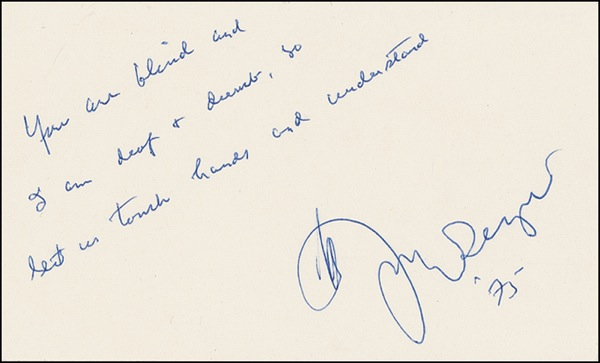 You are blind and
I am deaf + dumb, so
let us touch hands and understand
'75